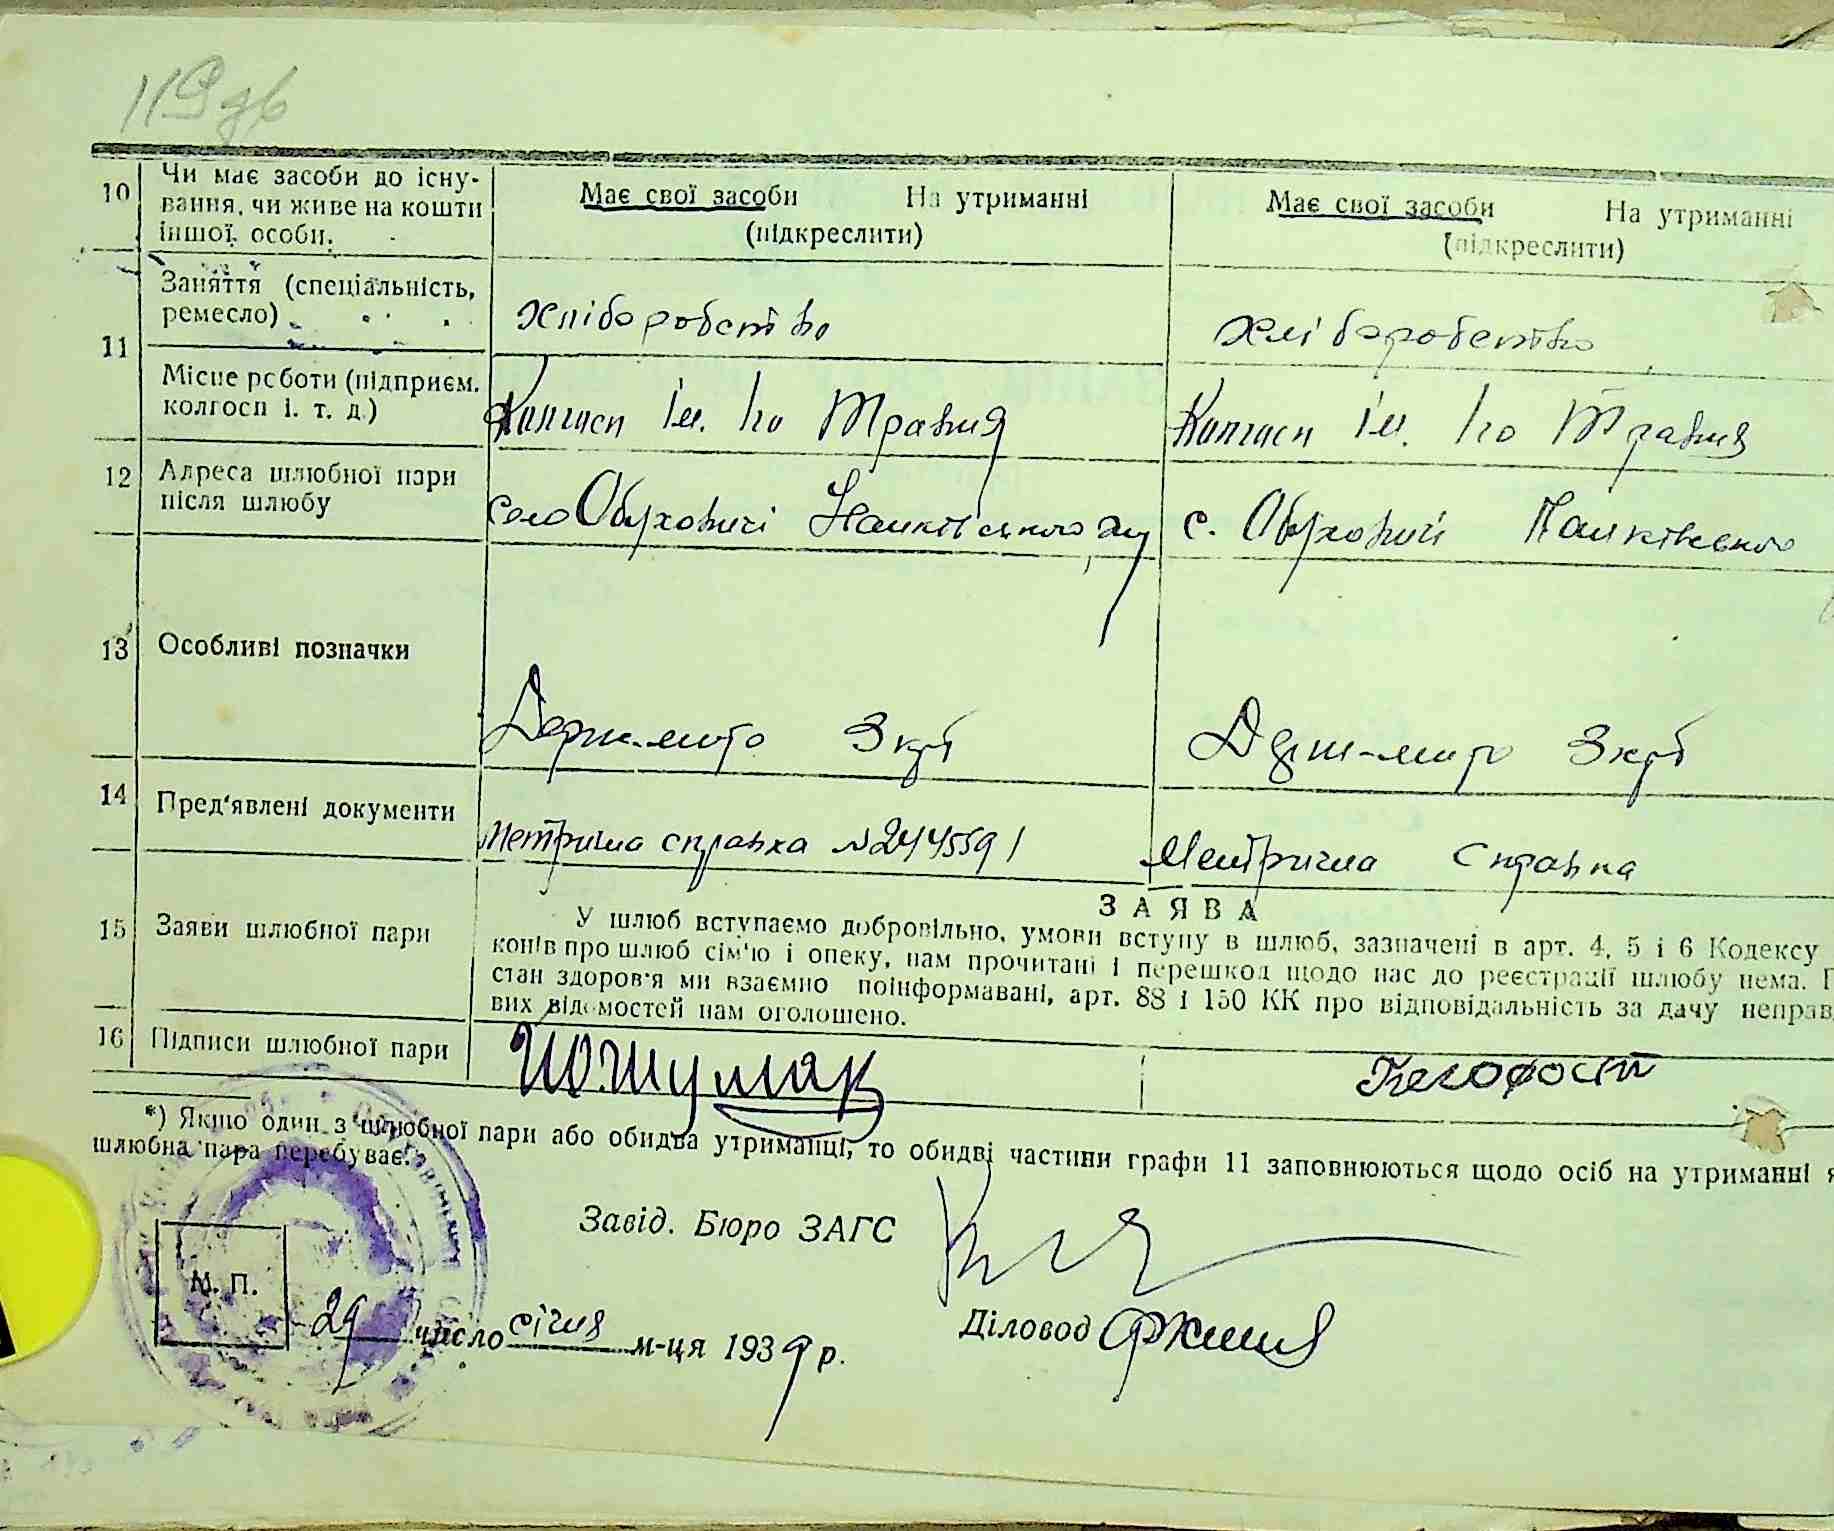 119 зв
10 Чи має засоби до існу-
вання, чи живе на кошти
іншої особи.
Має свої засоби На утриманні
(підкреслити)
Має свої засоби На утриманні
(підкреслити)
11 Заняття (спеціальність,
ремесло)
хліборобство
хліборобство
Місце роботи (підприєм.
колгосп і. т. д.)
Колгосп ім. 1го Травня
Колгосп ім. 1го Травня
12 Адреса шлюбної пари
після шлюбу
село Обуховичі
с. Обуховичі
13 Особливі позначки
Держ-мито 3 крб
Держ-мито 3 крб
14 Пред'явлені документи
Метрична справка №
Метрична справка
15 Заяви шлюбної пари
ЗАЯВА
У шлюб вступаємо добровільно, умови вступу в шлюб, зазначені в арт. 4, 5 і 6 Кодексу
конів про шлюб сім'ю і опеку, нам прочитані і перешкод щодо нас до реєстрації шлюбу нема. П
стан здоров'я ми взаємно поінформавані, арт. 88 і 150 КК про відповідальність за дачу неправ
вих відомостей нам оголошено.
16 Підписи шлюбної пари
*) Якщо один з шлюбної пари або обидва утриманці, то обидві частини графи 11 заповнюються щодо осіб на утриманні я
шлюбна пара перебуває.
Завід. Бюро ЗАГС
М. П.
29 число січня м-ця 1939 р.
Діловод